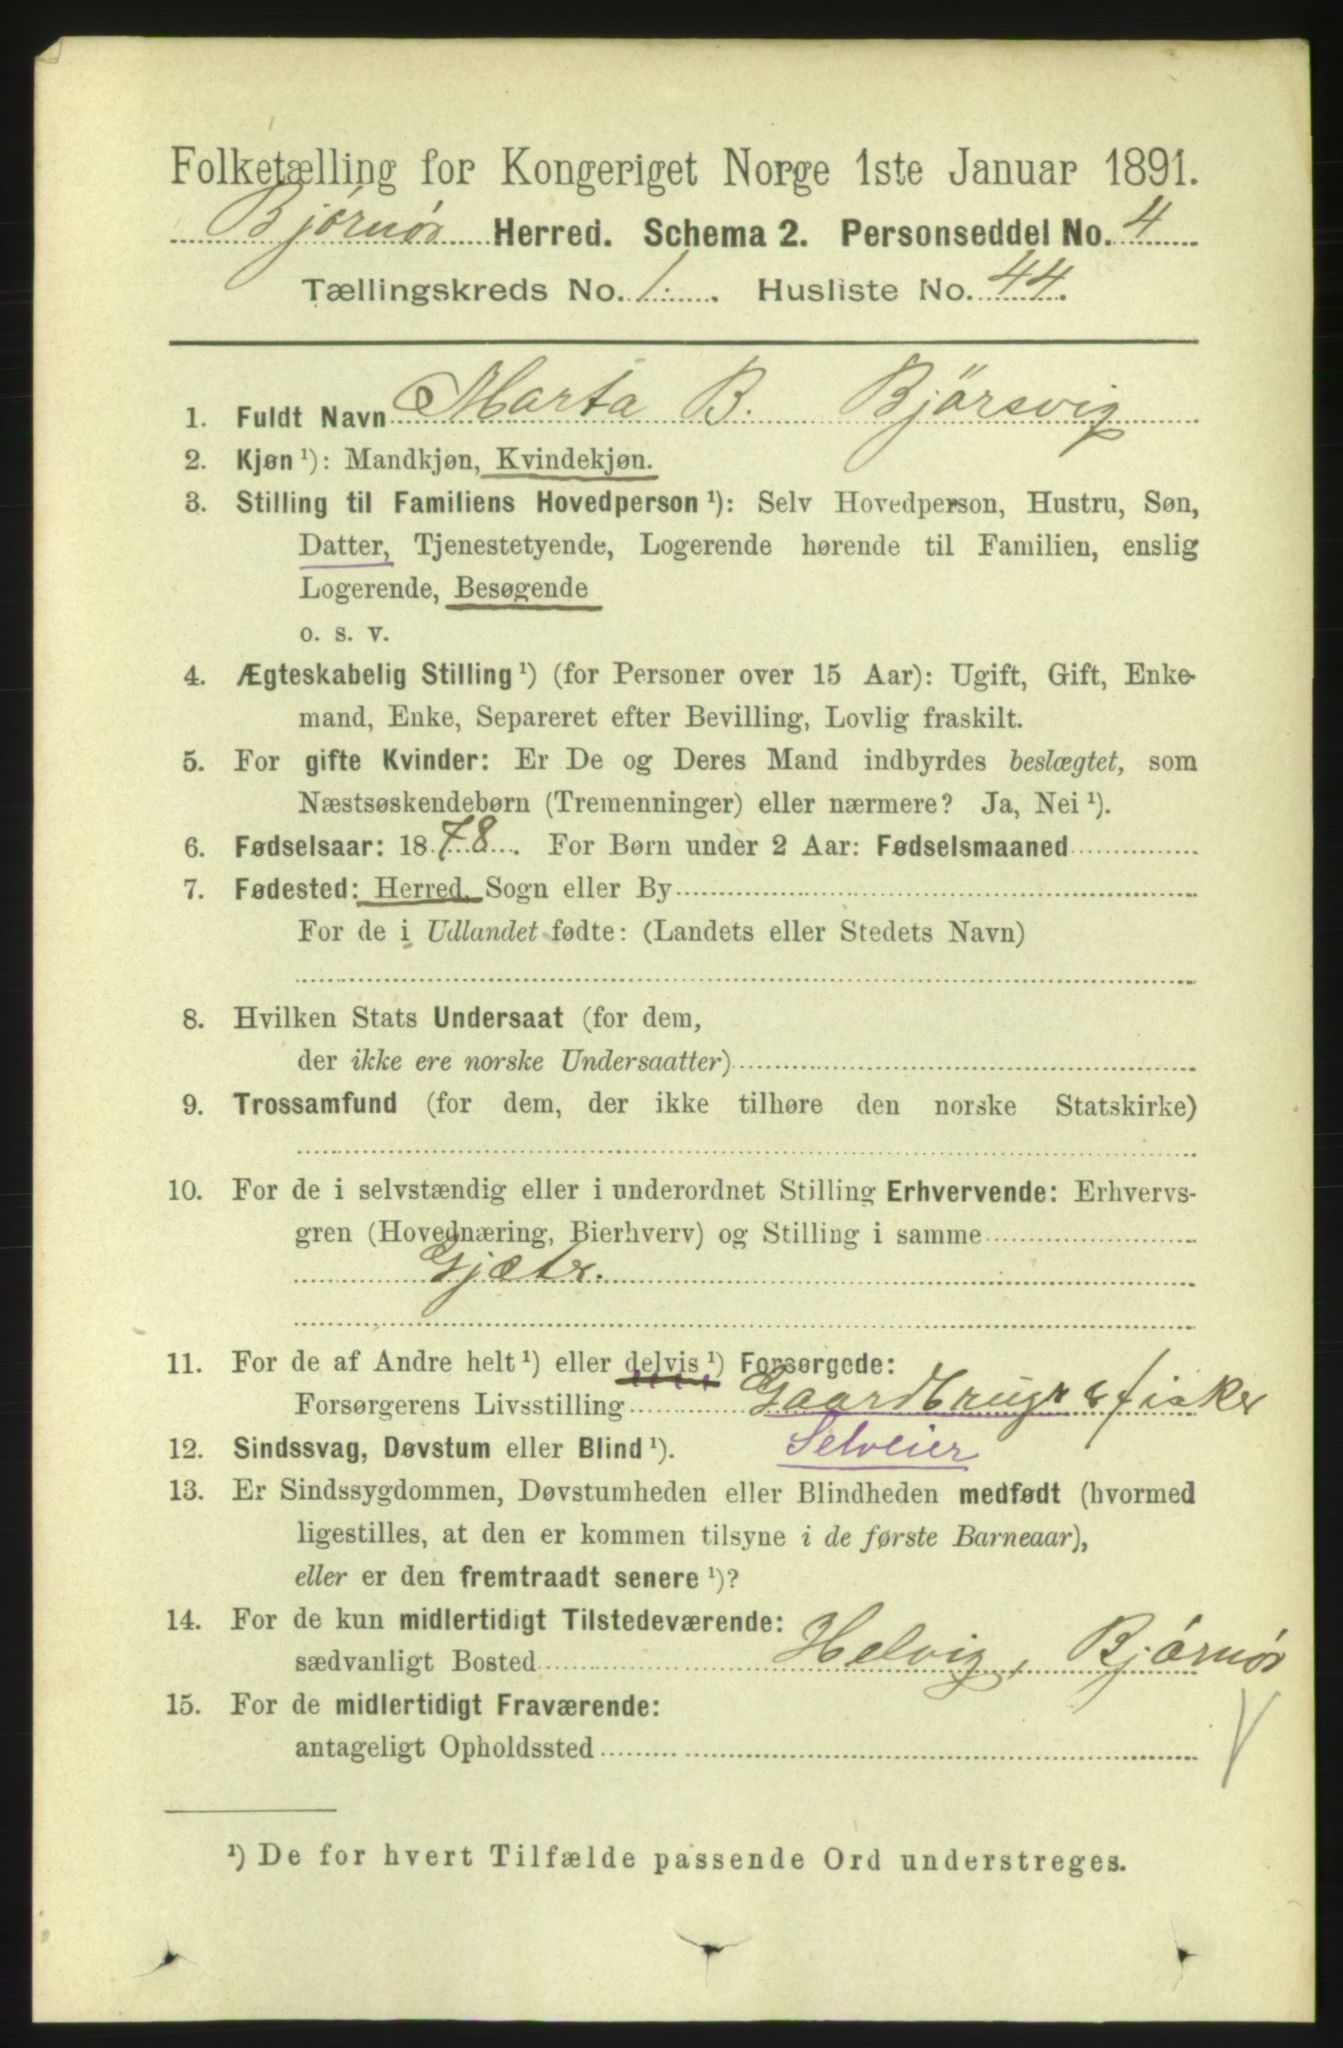 Folketælling for Kongeriget Norge 1ste Januar 1891.
Bjørnør Herred. Schema 2. Personseddel No. 4
Tællingskreds No. 1. Husliste No. 44.
1. Fuldt Navn Marta B. Bjørsvig
2. Kjøn ¹): Mandkjøn, Kvindekjøn.
3. Stilling til Familiens Hovedperson ¹): Selv Hovedperson, Hustru, Søn,
Datter, Tjenestetyende, Logerende hørende til Familien, enslig
Logerende, Besøgende
o. s. v.
4. Ægteskabelig Stilling ¹) (for Personer over 15 Aar): Ugift, Gift, Enke-
mand, Enke, Separeret efter Bevilling, Lovlig fraskilt.
5. For gifte Kvinder: Er De og Deres Mand indbyrdes beslægtet, som
Næstsøskendebørn (Tremenninger) eller nærmere? Ja, Nei ¹).
6. Fødselsaar: 1878. For Børn under 2 Aar: Fødselsmaaned
7. Fødested: Herred, Sogn eller By
For de i Udlandet fødte: (Landets eller Stedets Navn)
8. Hvilken Stats Undersaat (for dem,
der ikke ere norske Undersaatter)
9. Trossamfund (for dem, der ikke tilhøre den norske Statskirke)
10. For de i selvstændig eller i underordnet Stilling Erhvervende: Erhvervs-
gren (Hovednæring, Bierhverv) og Stilling i samme
Gjætr.
11. For de af Andre helt ¹) eller delvis ¹) Forsørgede:
Forsørgerens Livsstilling Gaardbruger & fisker
12. Sindssvag, Døvstum eller Blind ¹). Selveier
13. Er Sindssygdommen, Døvstumheden eller Blindheden medfødt (hvormed
ligestilles, at den er kommen tilsyne i de første Barneaar),
eller er den fremtraadt senere ¹)?
14. For de kun midlertidigt Tilstedeværende:
sædvanligt Bosted Helvig, Bjørnør
15. For de midlertidigt Fraværende:
antageligt Opholdssted
¹) De for hvert Tilfælde passende Ord understreges.